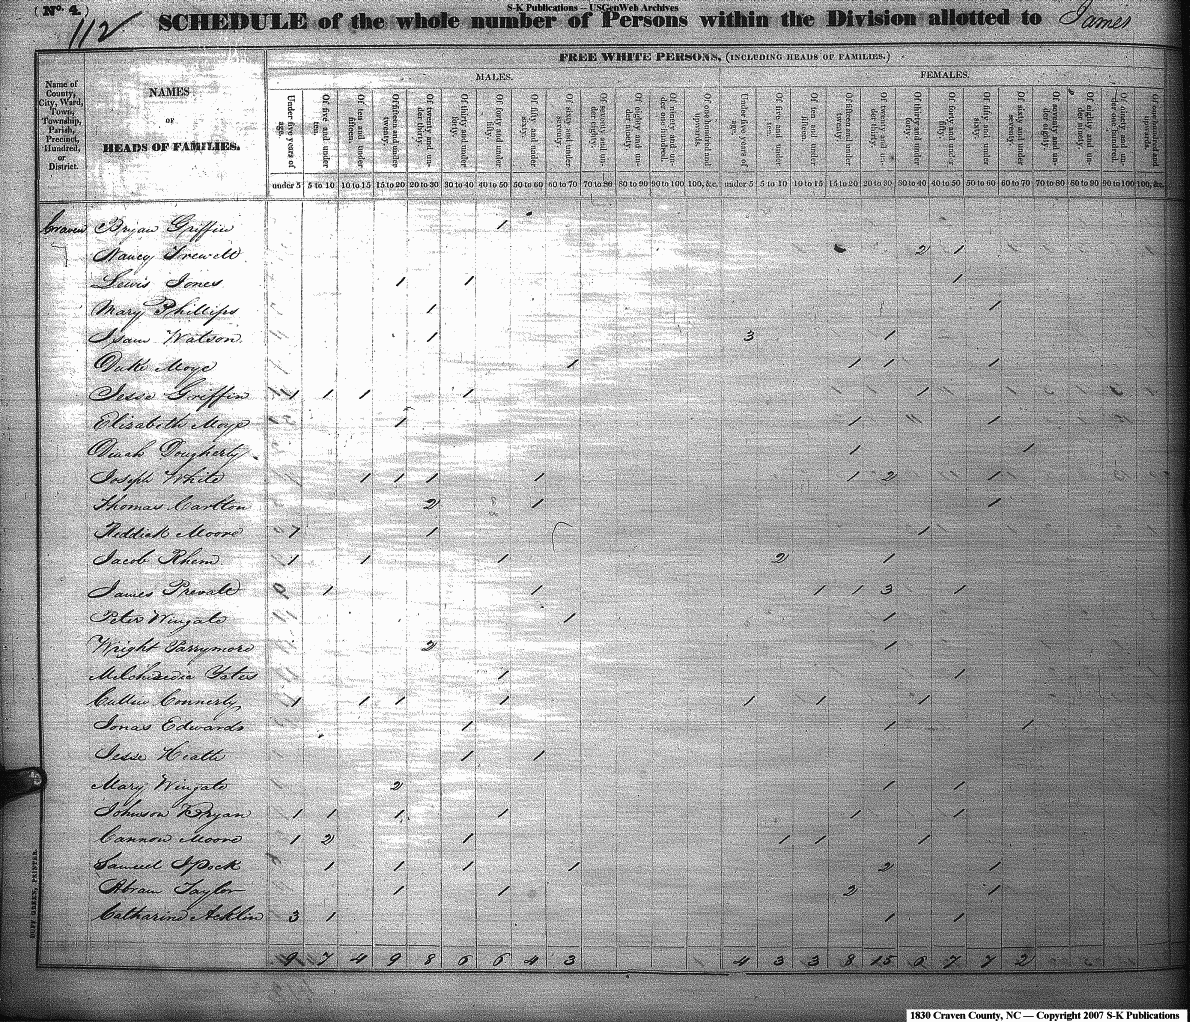 S-K Publications – USGenWeb Archives
( No. 4. )
112
SCHEDULE of the whole number of Persons within the Division allotted to James
FREE WHITE PERSONS, (INCLUDING HEADS OF FAMILIES.)
MALES. FEMALES.
Name of County, City, Ward, Town, Township, Parish, Precinct, Hundred, or District.
NAMES OF HEADS OF FAMILIES.
Under five years of age. Of five and under ten. Of ten and under fifteen. Of fifteen and under twenty. Of twenty and under thirty. Of thirty and under forty. Of forty and under fifty. Of fifty and under sixty. Of sixty and under seventy. Of seventy and under eighty. Of eighty and under ninety. Of ninety and under one hundred. Of one hundred and upwards. Under five years of age. Of five and under ten. Of ten and under fifteen. Of fifteen and under twenty. Of twenty and under thirty. Of thirty and under forty. Of forty and under fifty. Of fifty and under sixty. Of sixty and under seventy. Of seventy and under eighty. Of eighty and under ninety. Of ninety and under one hundred. Of one hundred and upwards.
under 5 5 to 10 10 to 15 15 to 20 20 to 30 30 to 40 40 to 50 50 to 60 60 to 70 70 to 80 80 to 90 90 to 100 100, &c. under 5 5 to 10 10 to 15 15 to 20 20 to 30 30 to 40 40 to 50 50 to 60 60 to 70 70 to 80 80 to 90 90 to 100 100, &c.
Craven Bryan Griffin 1
Nancy 2 1
Lewis Jones 1 1 1
Mary Phillips 1 1
Isam Watson 1 3 1
Duke Moye 1 1 1 1
Jesse Griffin 1 1 1 1 1
Elizabeth Moye 1 1 1
Dinah Dougherty 1 1
Joseph White 1 1 1 1 1 2 1
Thomas Carlton 2 1 1
Reddick Moore 1 1 1
Jacob Rhem 1 1 1 2 1
James Prevate 1 1 1 1 3 1
Peter Wingate 1 1
Wright Parrymore 2 1
Yates 1 1
Cullen Connerly 1 1 1 1 1 1 1
Jonas Edwards 1 1 1
Jesse Heath 1 1
Mary Wingate 2 1 1
Johnson Bryan 1 1 1 1 1 1
Cannon Moore 1 2 1 1 1 1
Samuel Ipock 1 1 1 1 2 1
Abram Taylor 1 1 2 1
Catharine Acklin 3 1 1 1
9 7 4 9 8 6 6 4 3 4 3 3 8 15 6 7 7 2
DUFF GREEN, PRINTER.
1830 Craven County, NC — Copyright 2007 S-K Publications